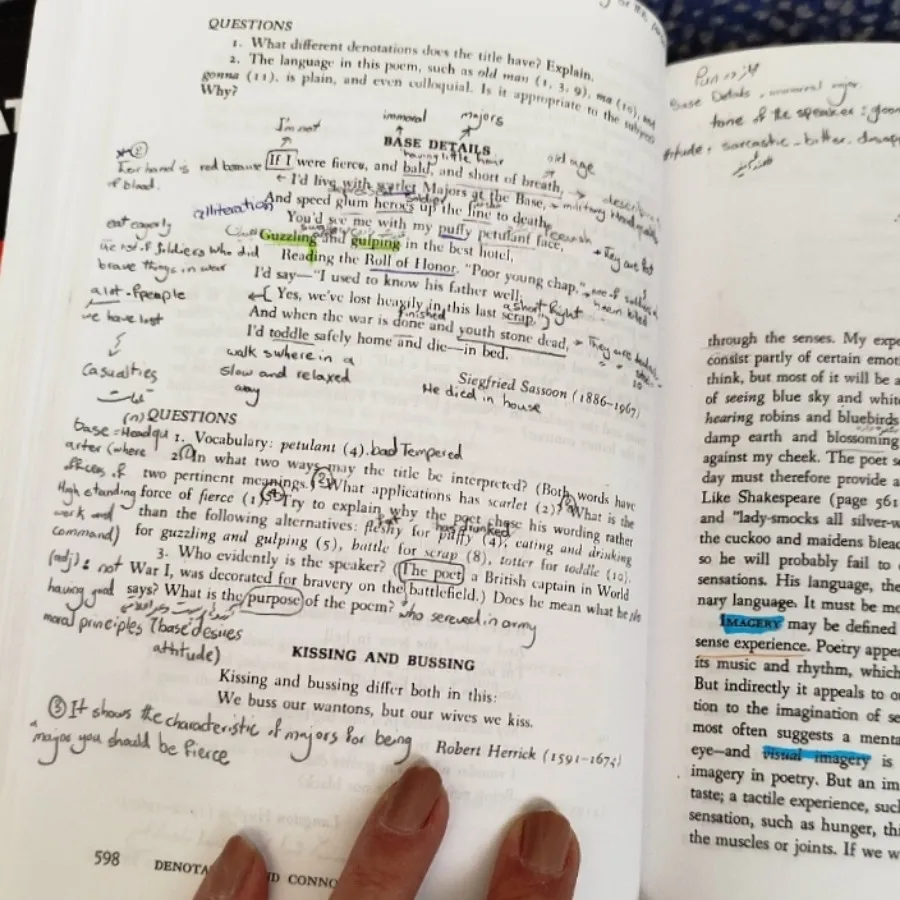 QUESTIONS
1. What different denotations does the title have? Explain.
2. The language in this poem, such as old man (1, 3, 9), ma (10), and
gonna (11), is plain, and even colloquial. Is it appropriate to the subject?
Why?
immoral majors
I'm not
BASE DETAILS
having little hair
old age
If I were fierce, and bald, and short of breath,
I'd live with scarlet Majors at the Base,
And speed glum heroes up the line to death.
You'd see me with my puffy petulant face,
Guzzling and gulping in the best hotel,
Reading the Roll of Honor. "Poor young chap,"
I'd say—"I used to know his father well;
Yes, we've lost heavily in this last scrap."
And when the war is done and youth stone dead,
I'd toddle safely home and die—in bed.
Siegfried Sassoon (1886-1967)
red because
of blood.
alliteration
eat eagerly
the list of soldiers who did
brave things in war
a lot of people
we have lost
casualties
a short fight
finished
walkswhere in a
slow and relaxed
way
He died in house
(n) QUESTIONS
base = Headqu
arter (where
officers of
High standing
work and
command)
(adj): not
having good
moral principles (base desires
attitude)
1. Vocabulary: petulant (4). bad Tempered
2. In what two ways may the title be interpreted? (Both words have
two pertinent meanings.) What applications has scarlet (2)? What is the
force of fierce (1)? Try to explain why the poet chose his wording rather
than the following alternatives: fleshy for puffy (4), eating and drinking
for guzzling and gulping (5), battle for scrap (8), totter for toddle (10).
3. Who evidently is the speaker? (The poet, a British captain in World
War I, was decorated for bravery on the battlefield.) Does he mean what he
says? What is the purpose of the poem?
who sereved in army
KISSING AND BUSSING
Kissing and bussing differ both in this:
We buss our wantons, but our wives we kiss.
Robert Herrick (1591-1674)
③ It shows the characteristic of majors for being
a major you should be fierce
598 DENOTA ND CONNO
Base Details, immoral major.
tone of the speaker:
sarcastic - bitter.
through the senses. My expe
consist partly of certain emot
think, but most of it will be a
of seeing blue sky and white
hearing robins and bluebirds
damp earth and blossoming
against my cheek. The poet s
day must therefore provide a
Like Shakespeare (page 561
and "lady-smocks all silver-w
the cuckoo and maidens bleac
so he will probably fail to
sensations. His language, the
nary language. It must be mo
IMAGERY may be defined
sense experience. Poetry appea
its music and rhythm, which
But indirectly it appeals to ou
tion to the imagination of se
most often suggests a menta
eye—and visual imagery is
imagery in poetry. But an im
taste; a tactile experience, such
sensation, such as hunger, thi
the muscles or joints. If we w